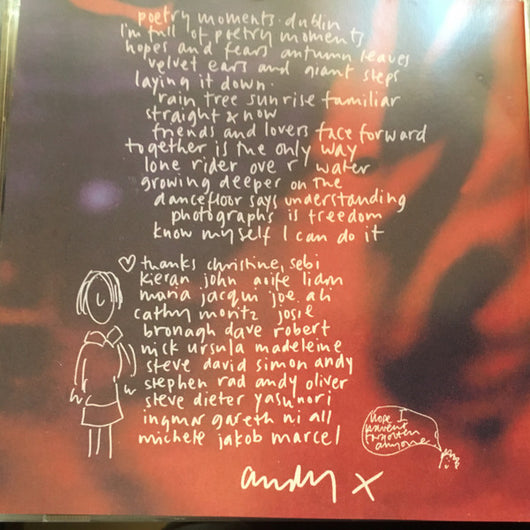 poetry moments. dublin
i'm full of poetry moments
hopes and fears autumn leaves
velvet ears and giant steps
laying it down.
rain tree sunrise familiar
straight & now
friends and lovers face forward
together is the only way
lone rider over water
growing deeper on the
dancefloor says understanding
photographs is freedom
know myself I can do it
♡ thanks christine, sebi
kieran john aoife liam
maria jacqui joe ali
cathy moritz josie
bronagh dave robert
nick ursula madeleine
steve david simon andy
stephen rad andy oliver
steve dieter yasunori
ingmar gareth niall
michele jakob marcel
hope I
haven't
forgotten
anyone
andy x